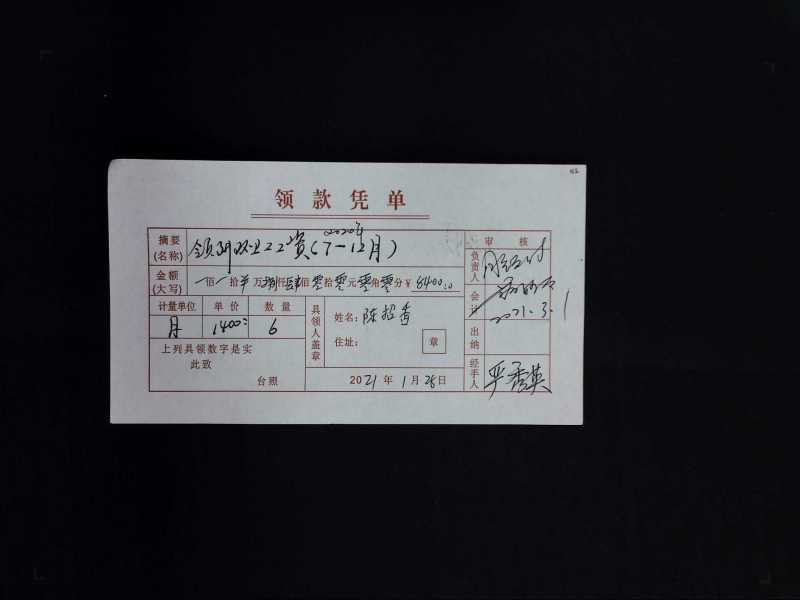 领款凭单
摘要(名称) 领 工资(7-12月) 2020年
金额(大写) 佰 拾 万 捌仟肆佰零拾零元零角零分 ¥ 8400.00
计量单位 单价 数量
月 1400 6
上列具领数字是实
此致
台照
具领人盖章
姓名: 陈招香
住址: 章
2021年1月28日
审核
负责人
会计
2021.3.1
出纳
经手人 严秀英